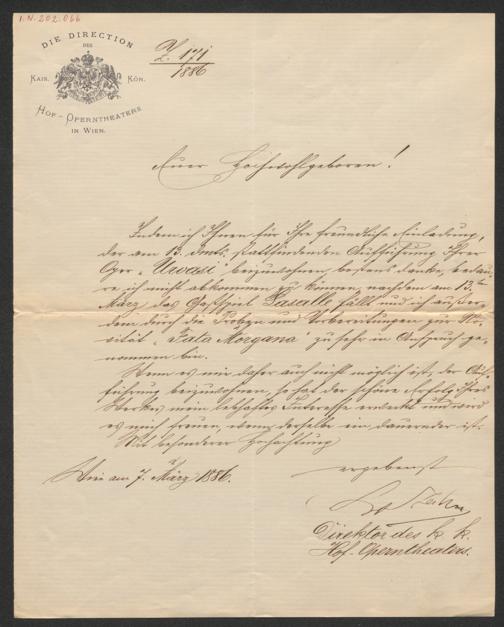 I.N. 202.066
DIE DIRECTION
DES
KAIS. KÖN.
HOF-OPERNTHEATERS
IN WIEN.
Z. 171
1886
Euer Hochwohlgeboren!
Indem ich Ihnen für Ihre freundliche Einladung,
der am 13. dmts. stattfindenden Aufführung Ihrer
Oper „Urvasi" beizuwohnen, bestens danke, bedau-
re ich nicht abkommen zu können, nachdem am 13ten
März das Gastspiel Lasalle fällt und ich außer-
dem durch die Proben und Vorbereitungen zur No-
vität „Fata Morgana" zu sehr in Anspruch ge-
nommen bin.
Wenn es mir daher auch nicht möglich ist, der Auf-
führung beizuwohnen, so hat der schöne Erfolg Ihres
Werkes mein lebhaftes Interesse erweckt und wird
es mich freuen, wenn derselbe ein dauernder ist.
Mit besonderer Hochachtung
ergebenst
Wien am 7. März 1886.
Direktor des k. k.
Hof-Operntheaters.